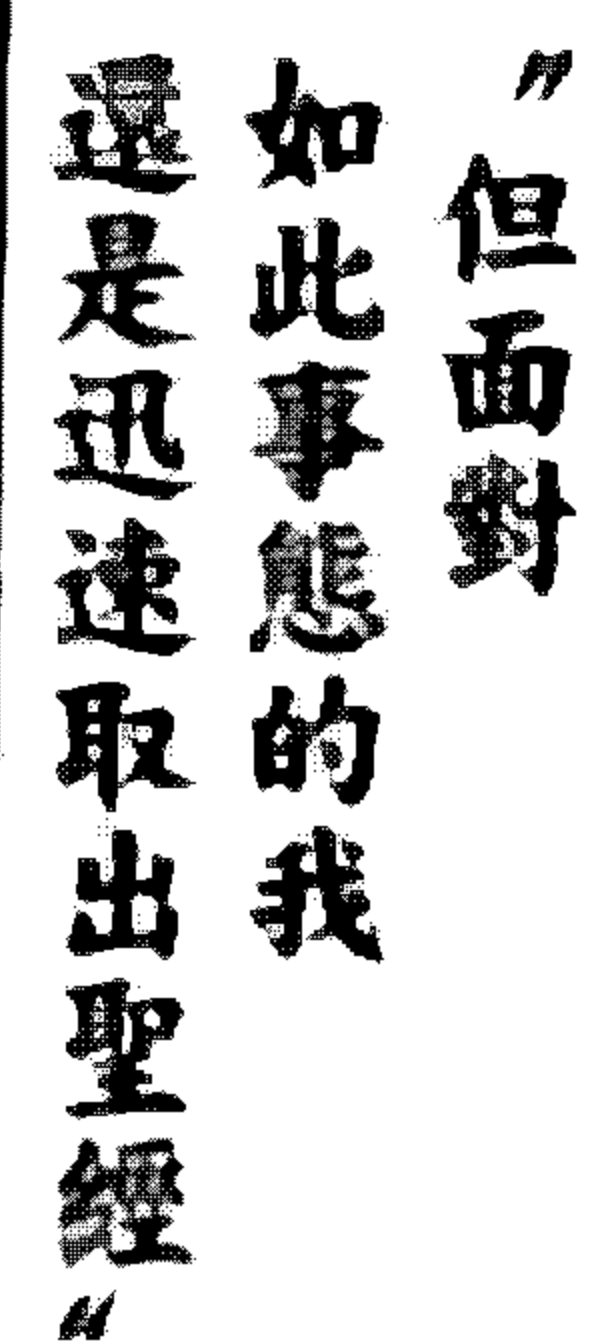 "但面對
如此事態的我
還是迅速取出聖經"